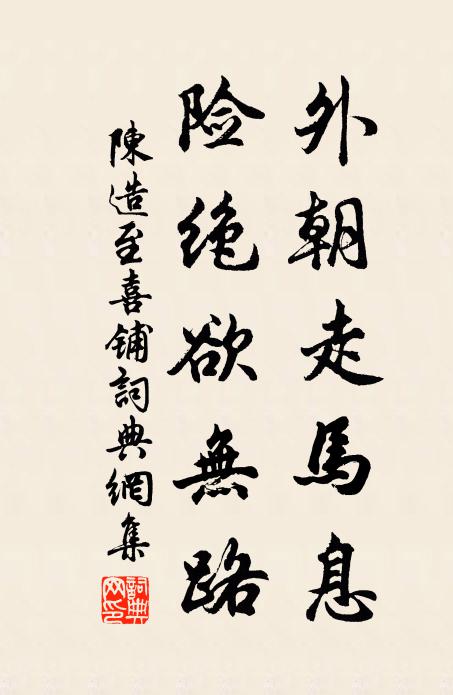 外朝走馬息
险绝欲無路
陳造至喜鋪詞典網集
詞典网印